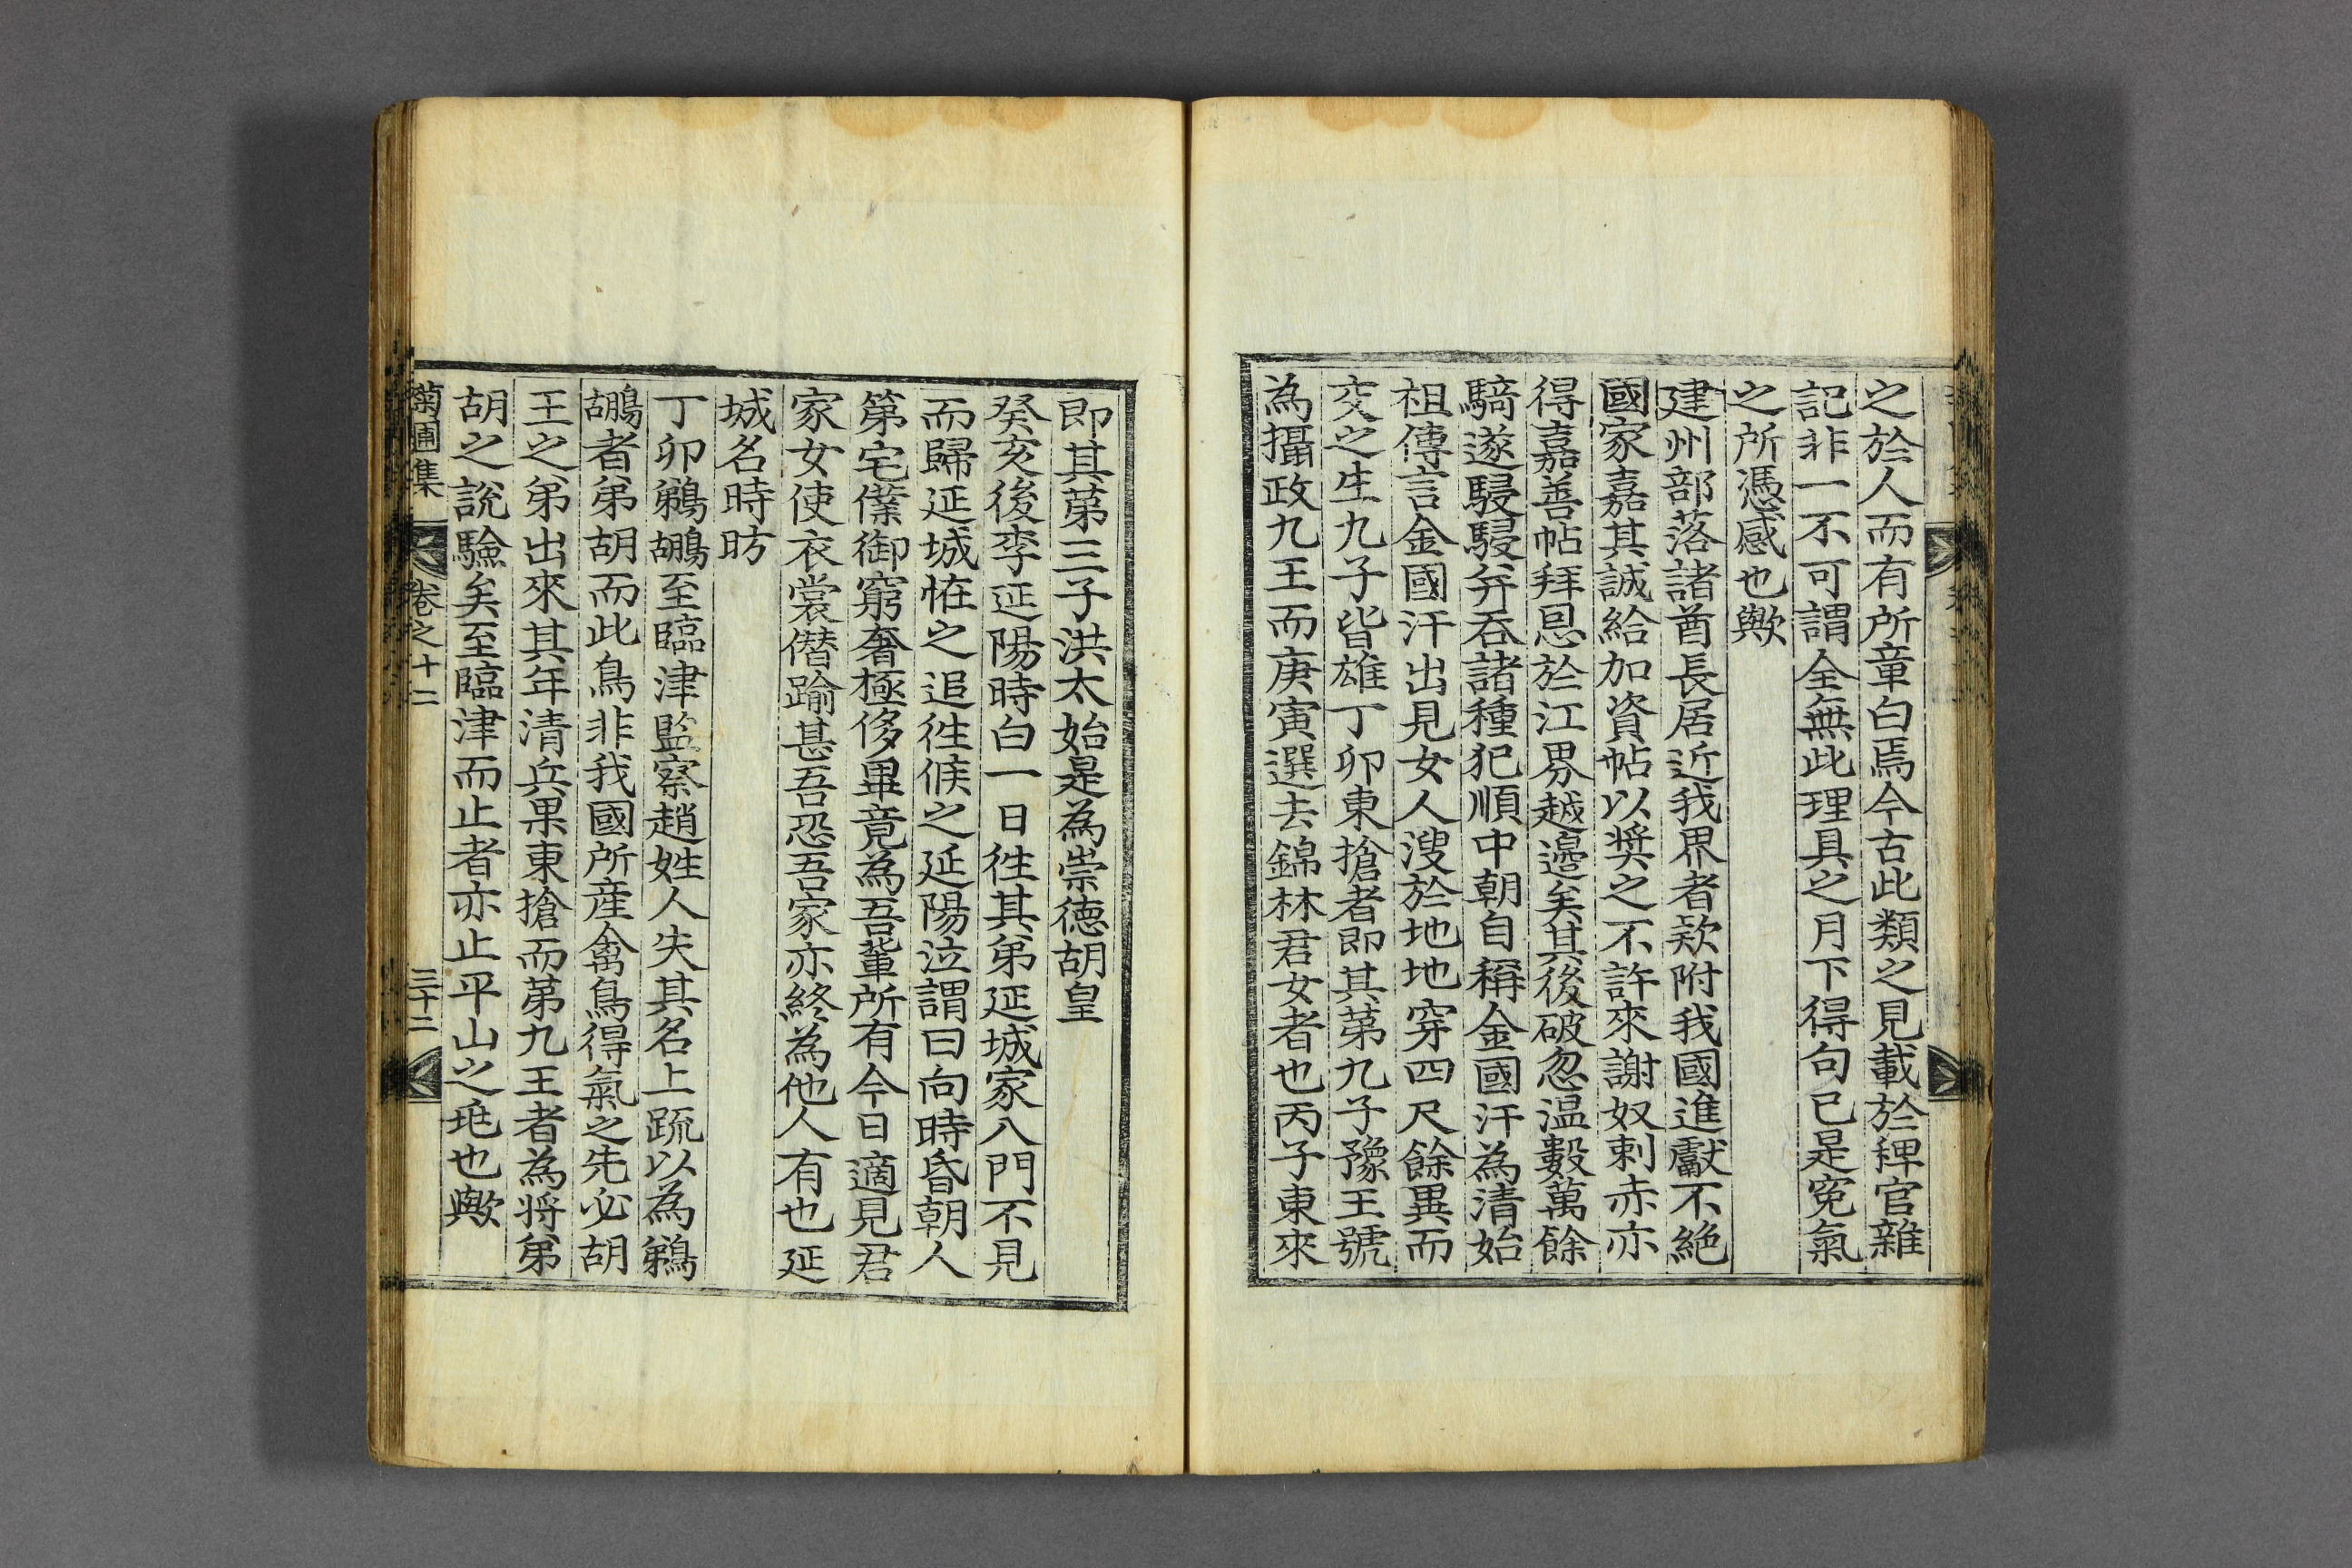 之於人而有所章白焉今古此類之見載於稗官雜
記非一不可謂全無此理具之月下得句已是寃氣
之所憑感也歟
建州部落諸酋長居近我界者欵附我國進獻不絶
國家嘉其誠給加資帖以奬之不許來謝奴剌赤亦
得嘉善帖拜恩於江界越邊矣其後破忽温數萬餘
騎遂駸駸弁吞諸種犯順中朝自稱金國汗為清始
祖傳言金國汗出見女人溲於地地穿四尺餘異而
交之生九子皆雄丁卯東搶者即其第九子豫王號
為攝政九王而庚寅選去錦林君女者也丙子東來
即其第三子洪太始是為崇德胡皇
癸亥後李延陽時白一日徃其弟延城家八門不見
而歸延城恠之追徃候之延陽泣謂曰向時昏朝人
第宅僕御窮奢極侈畢竟為吾輩所有今日適見君
家女使衣裳僭踰甚吾恐吾家亦終為他人有也延
城名時昉
丁卯鵜鶘至臨津監察趙姓人失其名上疏以為鵜
鶘者弟胡而此鳥非我國所産禽鳥得氣之先必胡
王之弟出來其年清兵果東搶而第九王者為将弟
胡之說驗矣至臨津而止者亦止平山之兆也歟
菊圃集
卷之十二
三十二